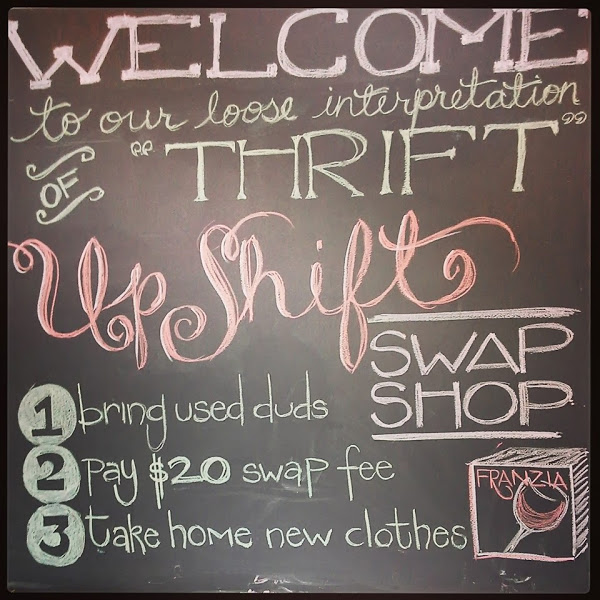 WELCOME
to our loose interpretation
OF "THRIFT"
UpShift
SWAP
SHOP
1 bring used duds
2 pay $20 swap fee
3 take home new clothes
FRANZIA